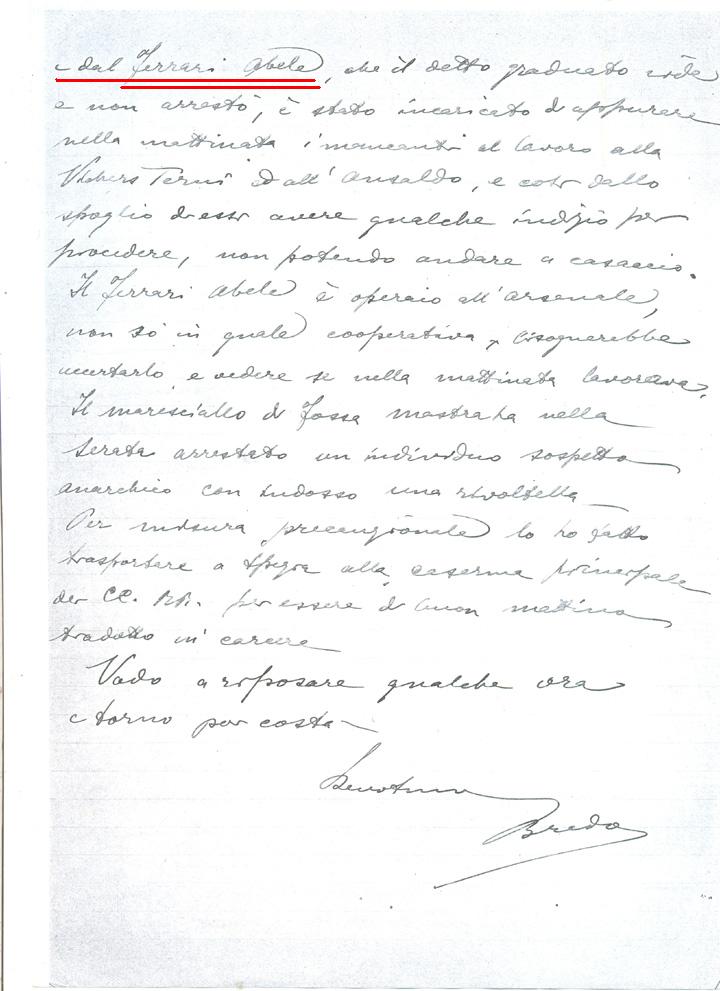 e dal Ferrari Abele, che il detto graduato vide
e non arrestò, è stato incaricato di appurare
nella mattinata i mancanti al lavoro alla
Vickers Terni ed all'Ansaldo, e così dallo
spoglio di essi avere qualche indizio per
procedere, non potendo andare a casaccio.
Il Ferrari Abele è operaio all'arsenale,
non so in quale cooperativa, bisognerebbe
accertarlo e vedere se nella mattinata lavorava.
Il maresciallo di Fossa mastra ha nella
serata arrestato un individuo sospetto
anarchico con indosso una rivoltella
Per misura precauzionale lo ho fatto
trasportare a Spezia alla caserma principale
dei CC. RR. per essere di buon mattino
tradotto in carcere
Vado a riposare qualche ora
e torno per costà
Devotmo
Breda